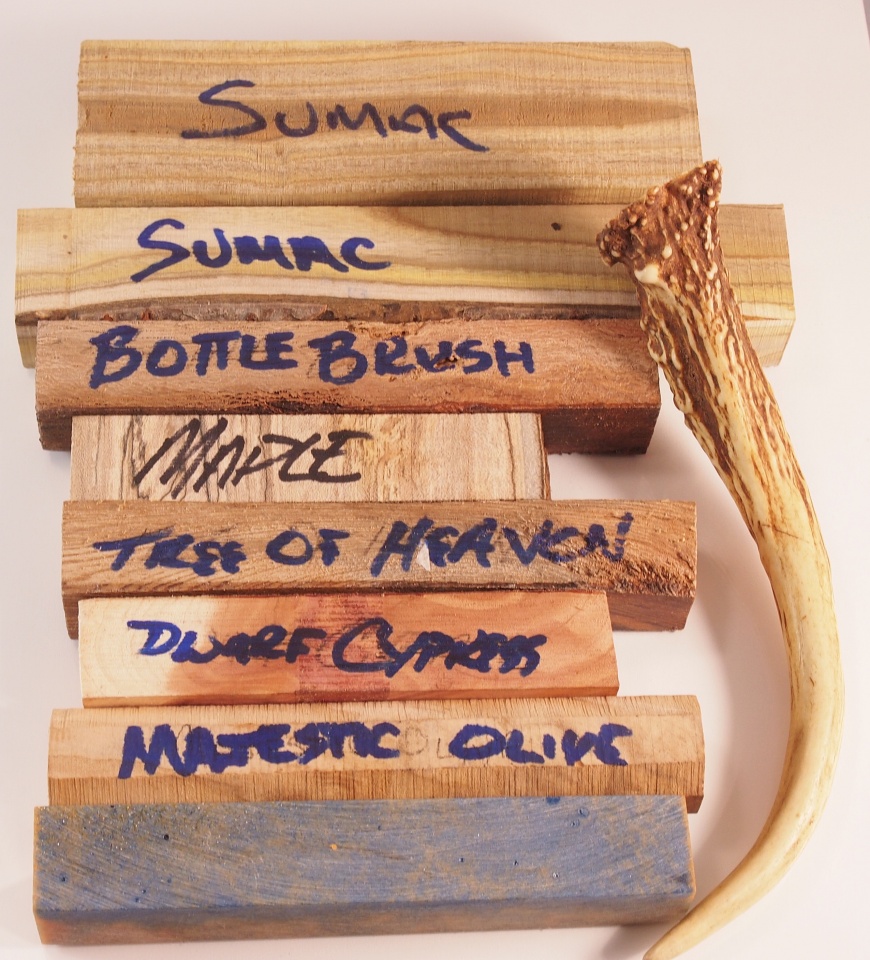 SUMAC
SUMAC
BOTTLE BRUSH
MAPLE
TREE OF HEAVEN
DWARF CYPRESS
MAJESTIC OLIVE